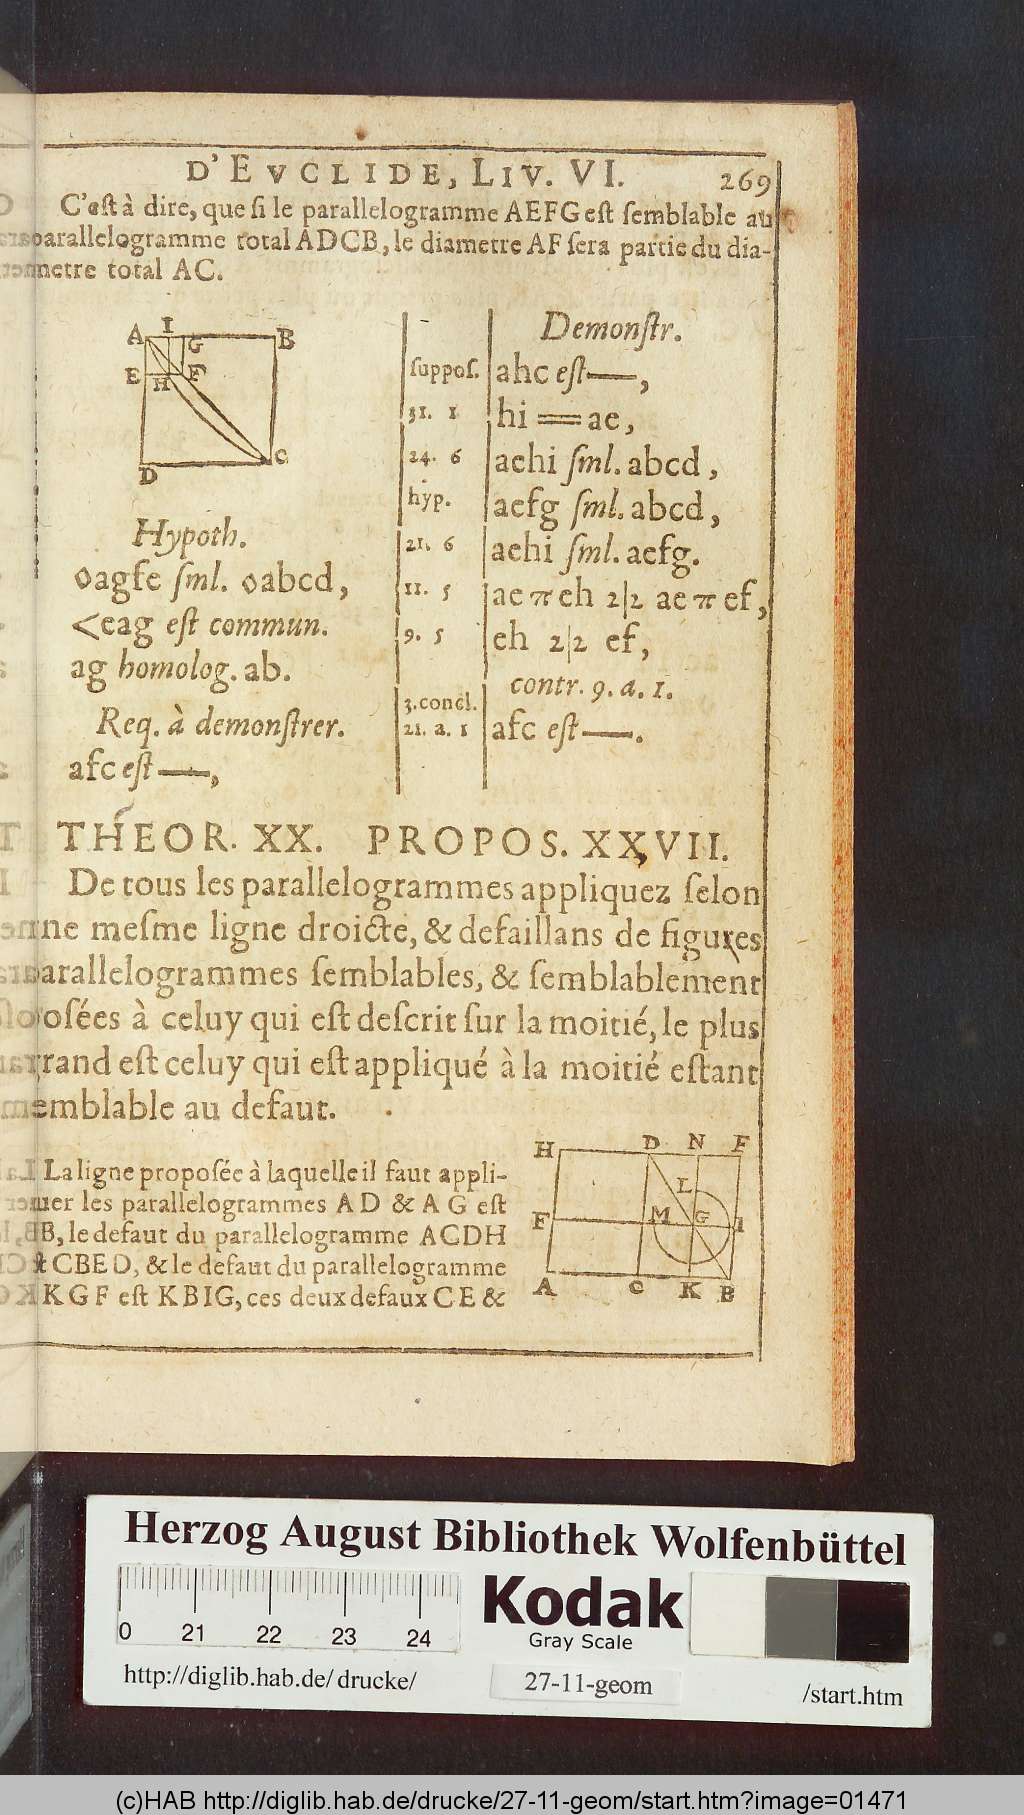 D'EVCLIDE, LIV. VI. 269
C'est à dire, que si le parallelogramme AEFG est semblable au
parallelogramme total ADCB, le diametre AF sera partie du dia-
metre total AC.
A I G B
E H F
D C
Hypoth.
◇agfe sml. ◇abcd,
<eag est commun.
ag homolog. ab.
Req. à demonstrer.
afc est —,
Demonstr.
suppos. ahc est —,
31. 1 hi = ae,
24. 6 aehi sml. abcd,
hyp. aefg sml. abcd,
21. 6 aehi sml. aefg.
11. 5 ae π eh 2|2 ae π ef,
9. 5 eh 2|2 ef,
contr. 9. a. 1.
3. concl.
21. a. 1 afc est —.
THEOR. XX. PROPOS. XXVII.
De tous les parallelogrammes appliquez selon
une mesme ligne droicte, & defaillans de figures
parallelogrammes semblables, & semblablement
posées à celuy qui est descrit sur la moitié, le plus
grand est celuy qui est appliqué à la moitié estant
semblable au defaut.
La ligne proposée à laquelle il faut appli-
quer les parallelogrammes AD & AG est
AB, le defaut du parallelogramme ACDH
est CBED, & le defaut du parallelogramme
AKGF est KBIG, ces deux defaux CE &
H D N F
L
F M G I
A C K B
Herzog August Bibliothek Wolfenbüttel
0 21 22 23 24
Kodak
Gray Scale
http://diglib.hab.de/drucke/ 27-11-geom /start.htm
(c)HAB http://diglib.hab.de/drucke/27-11-geom/start.htm?image=01471